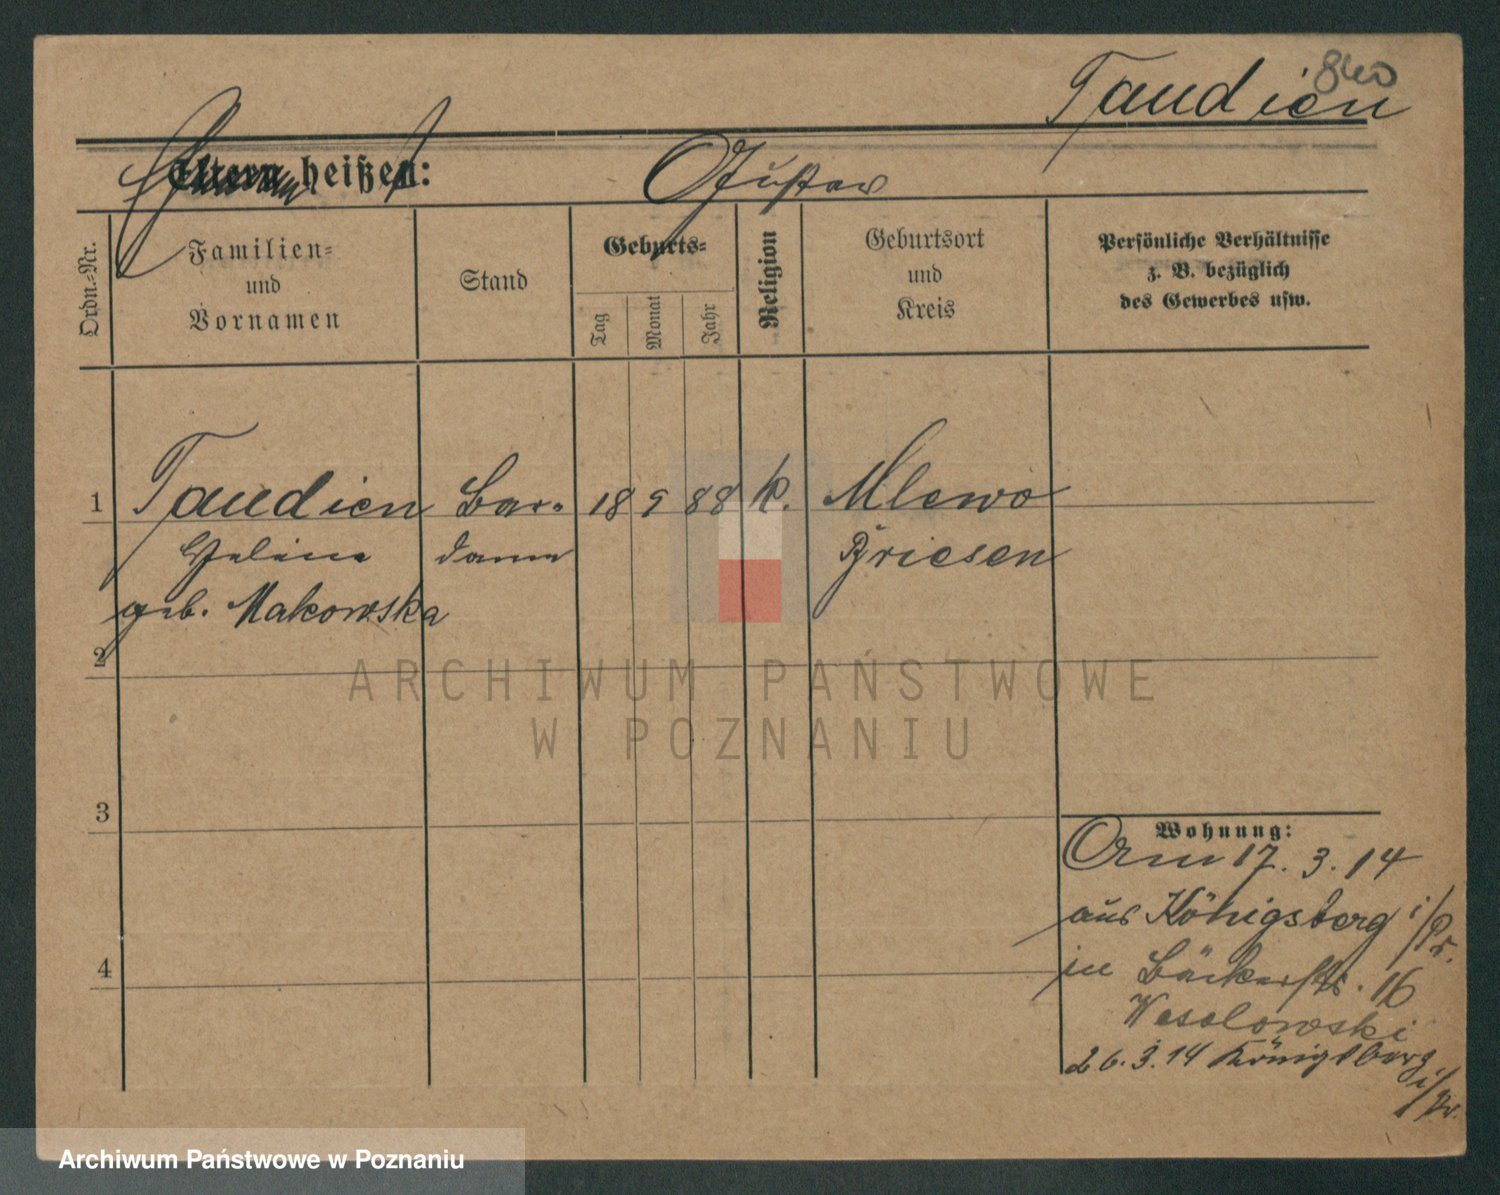 840
Taudien
Eltern heißen: Gustav
Ordn.=Nr.
Familien=
und
Vornamen
Stand
Geburts=
Tag
Monat
Jahr
Religion
Geburtsort
und
Kreis
Persönliche Verhältnisse
z. B. bezüglich
des Gewerbes usw.
1 Taudien Bar= 18 9 88 k. Mlewo
Helene dame Briesen
geb. Makowska
2
ARCHIWUM PAŃSTWOWE
W POZNANIU
3
Wohnung:
Am 17. 3. 14
aus Königsberg i/Pr.
4
in Bäckerstr. 16
Wesolowski
26. 3. 14 Königsberg
i/Pr.
Archiwum Państwowe w Poznaniu